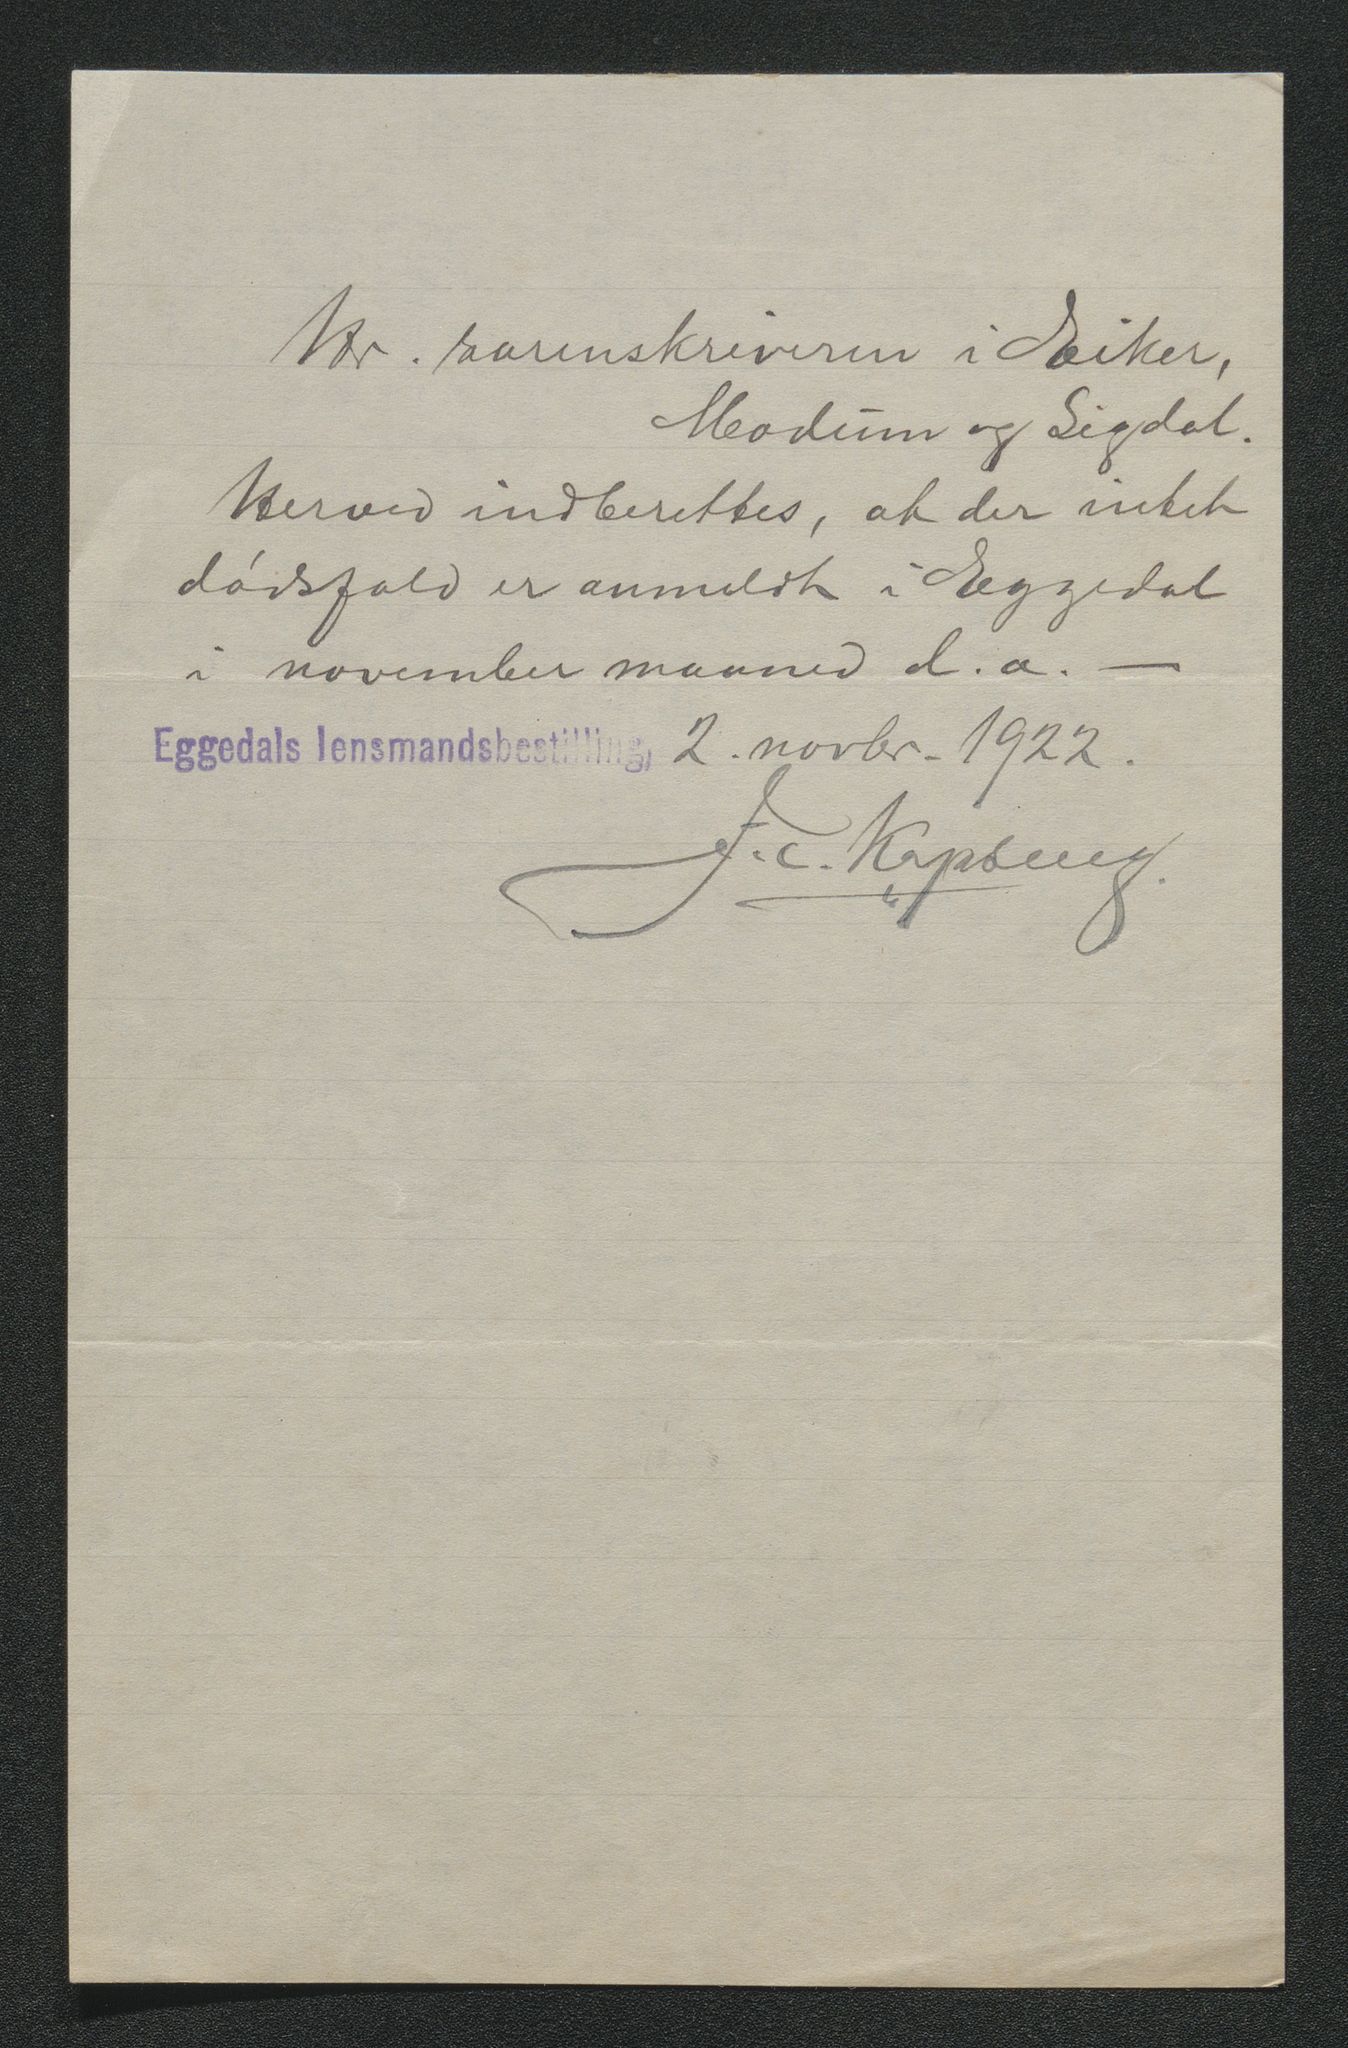 Hr. sorenskriveren i Eiker,
Modum og Sigdal.
Herved indberettes, at der intet
dódsfald er anmeldt i Eggedal
i november maaned d. a. —
Eggedals lensmandsbestilling, 2. novbr. 1922.
F. C. Kopseng.